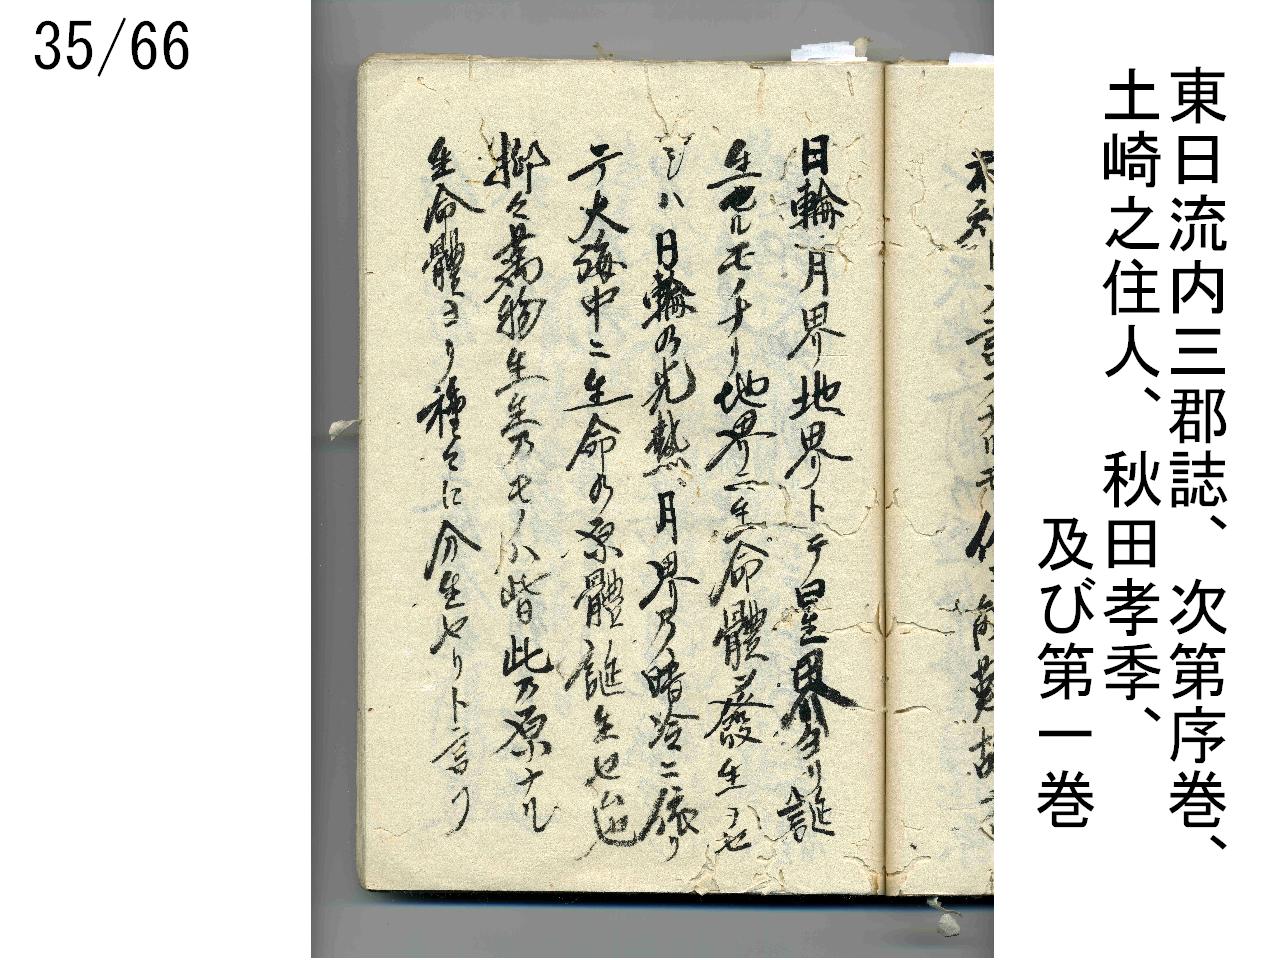 35/66
東日流内三郡誌、次第序巻、
土崎之住人、秋田孝季、
及び第一巻
日輪月界地界トテ星界ヨリ誕
生セルモノナリ地界ニ生命體ヲ發生セ
シハ日輪の光熱月界乃暗冷ニ依り
テ大海中ニ生命の原體誕生せ
擲々萬物生生乃モノハ皆此乃原ナル
生命體ヨリ種々に分生せリト言り